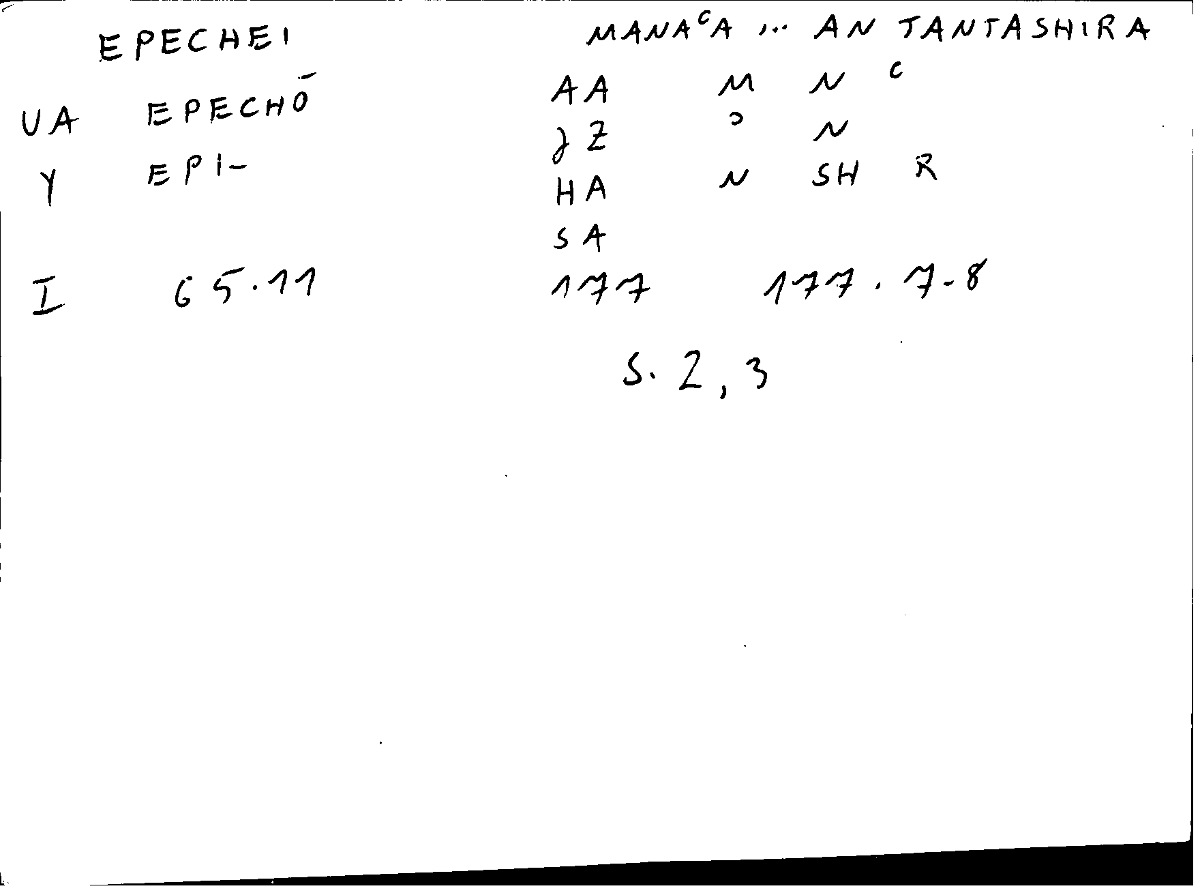 EPECHEI MANAᶜA ... AN TANTASHIRA
UA EPECHŌ AA M N ᶜ
Y EPI- JZ ᵓ N
HA N SH R
SA
I 65.11 177 177.7-8
S. 2, 3